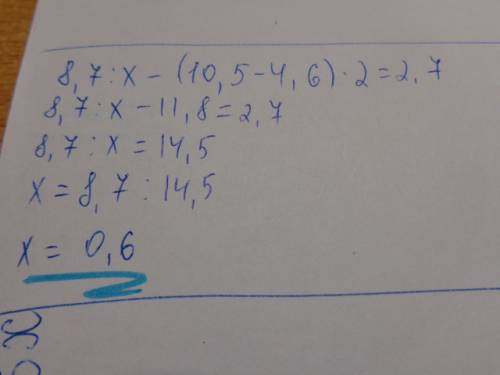 8,7:x-(10,5-4,6)·2=2,7
8,7:x-11,8=2,7
8,7:x=14,5
x=8,7:14,5
x=0,6